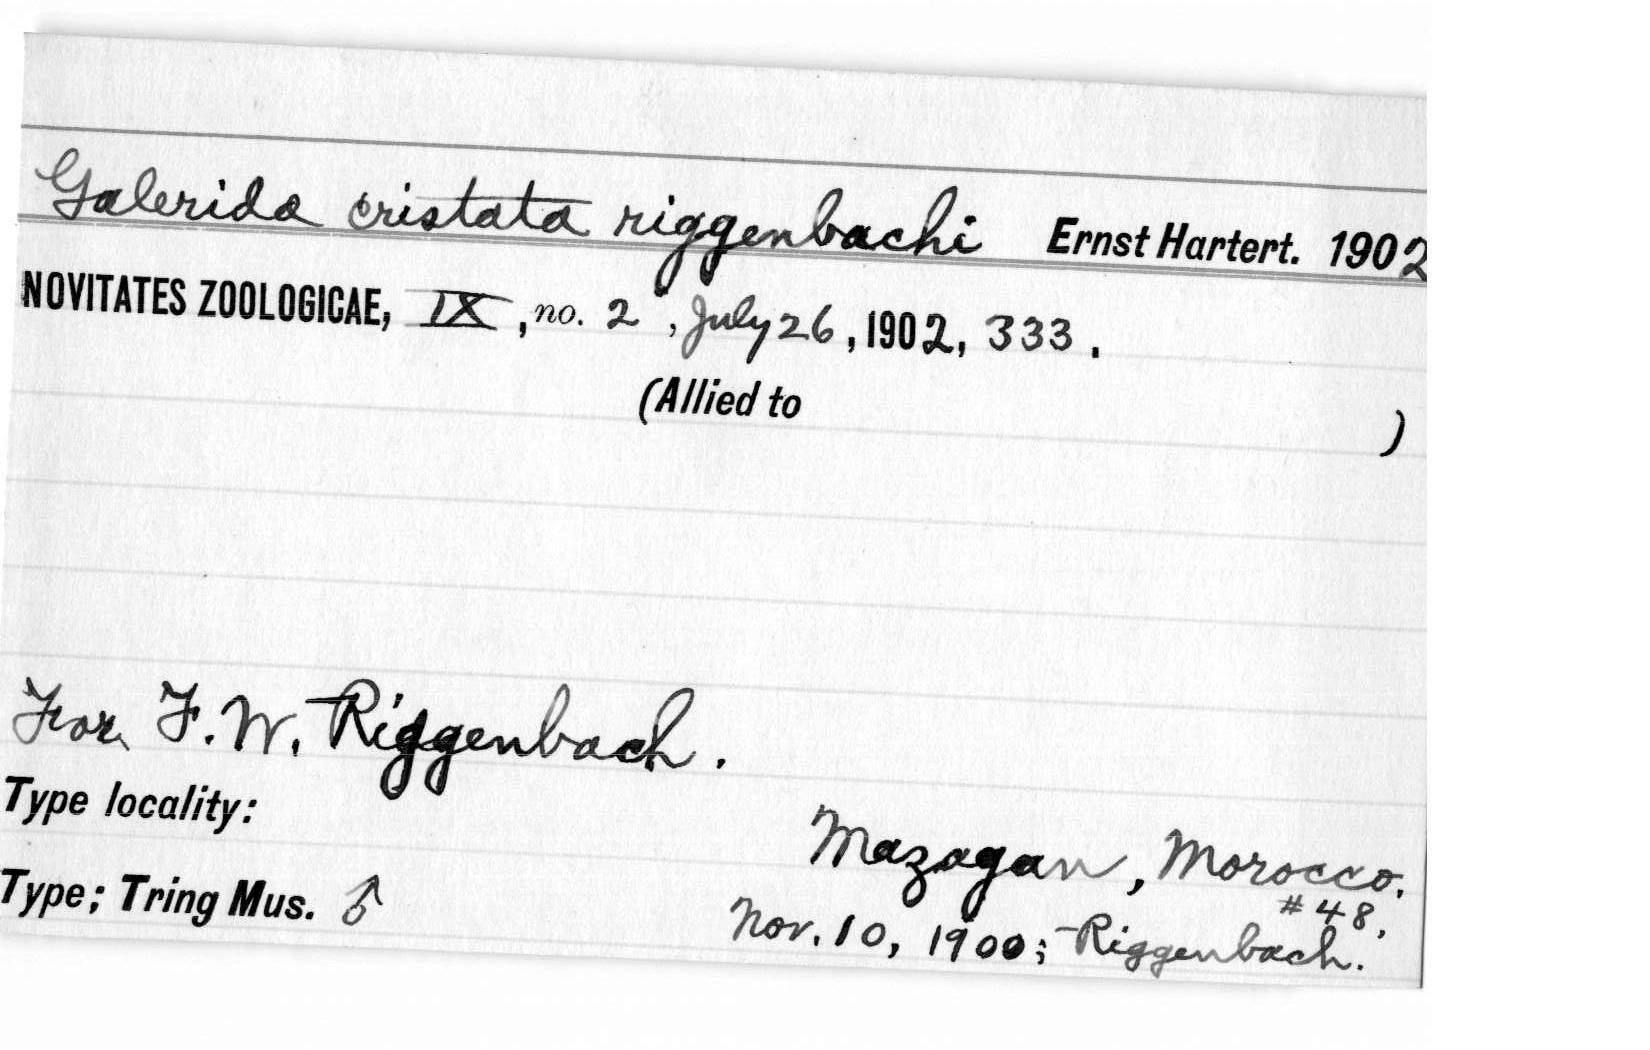 Galerida cristata riggenbachi Ernst Hartert. 1902
NOVITATES ZOOLOGICAE, IX, no. 2, July 26, 1902, 333.
(Allied to )
For F. W. Riggenbach.
Type locality:
Mazagan, Morocco.
Type; Tring Mus. ♂ #48.
Nov. 10, 1900; Riggenbach.